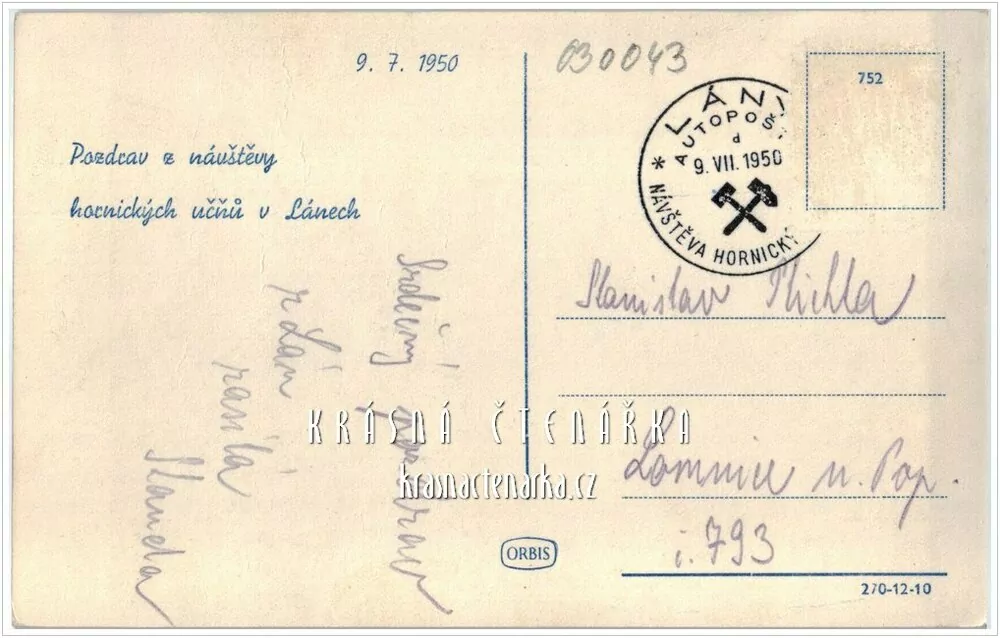 9. 7. 1950
Pozdrav z návštěvy
hornických učňů v Lánech
Srdečný pozdrav
z Lán
zasílá
Standa
030043
752
LÁNY
AUTOPOŠ
d
9. VII. 1950
* NÁVŠTĚVA HORNICKÝ
Stanislav Plichta
Lomnice n. Pop.
č. 793
KRÁSNÁ ČTENÁŘKA
krasnactenarka.cz
ORBIS
270-12-10